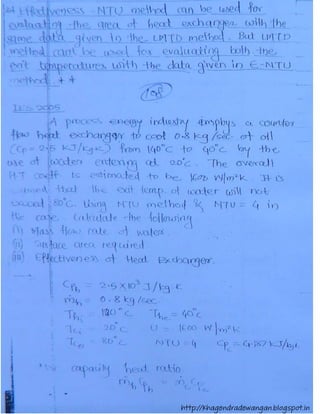 ** Effectiveness - NTU method can be used for
evaluating the area of heat exchanger with the
same data given to the LMTD method. But LMTD
method can't be used for evaluating both the
exit temperatures with the data given in E-NTU
method **
108
IES 2005
A process energy industry employs a counter
flow heat exchanger to cool 0.8 kg/sec of oil
(Cp = 2.5 kJ/kgK) from 120°C to 40°C by the
use of water entering at 20°C. The overall
H.T coeff. is estimated to be 1600 W/m²K. It is
assumed that the exit temp. of water will not
exceed 80°C. Using NTU method & NTU = 4 in
the case. Calculate the following
(i) Mass flow rate of water.
(ii) Surface area required
(iii) Effectiveness of Heat Exchanger.
Cph = 2.5 × 10³ J/kg.K
ṁh = 0.8 kg/sec.
Thi = 120°C The = 40°C
Tci = 20°C U = 1600 W/m²K
Tce = 80°C NTU = 4 Cpc = 4.187 kJ/kgK
capacity heat ratio
ṁh Cph = ṁc Cpc
http://khagendradewangan.blogspot.in